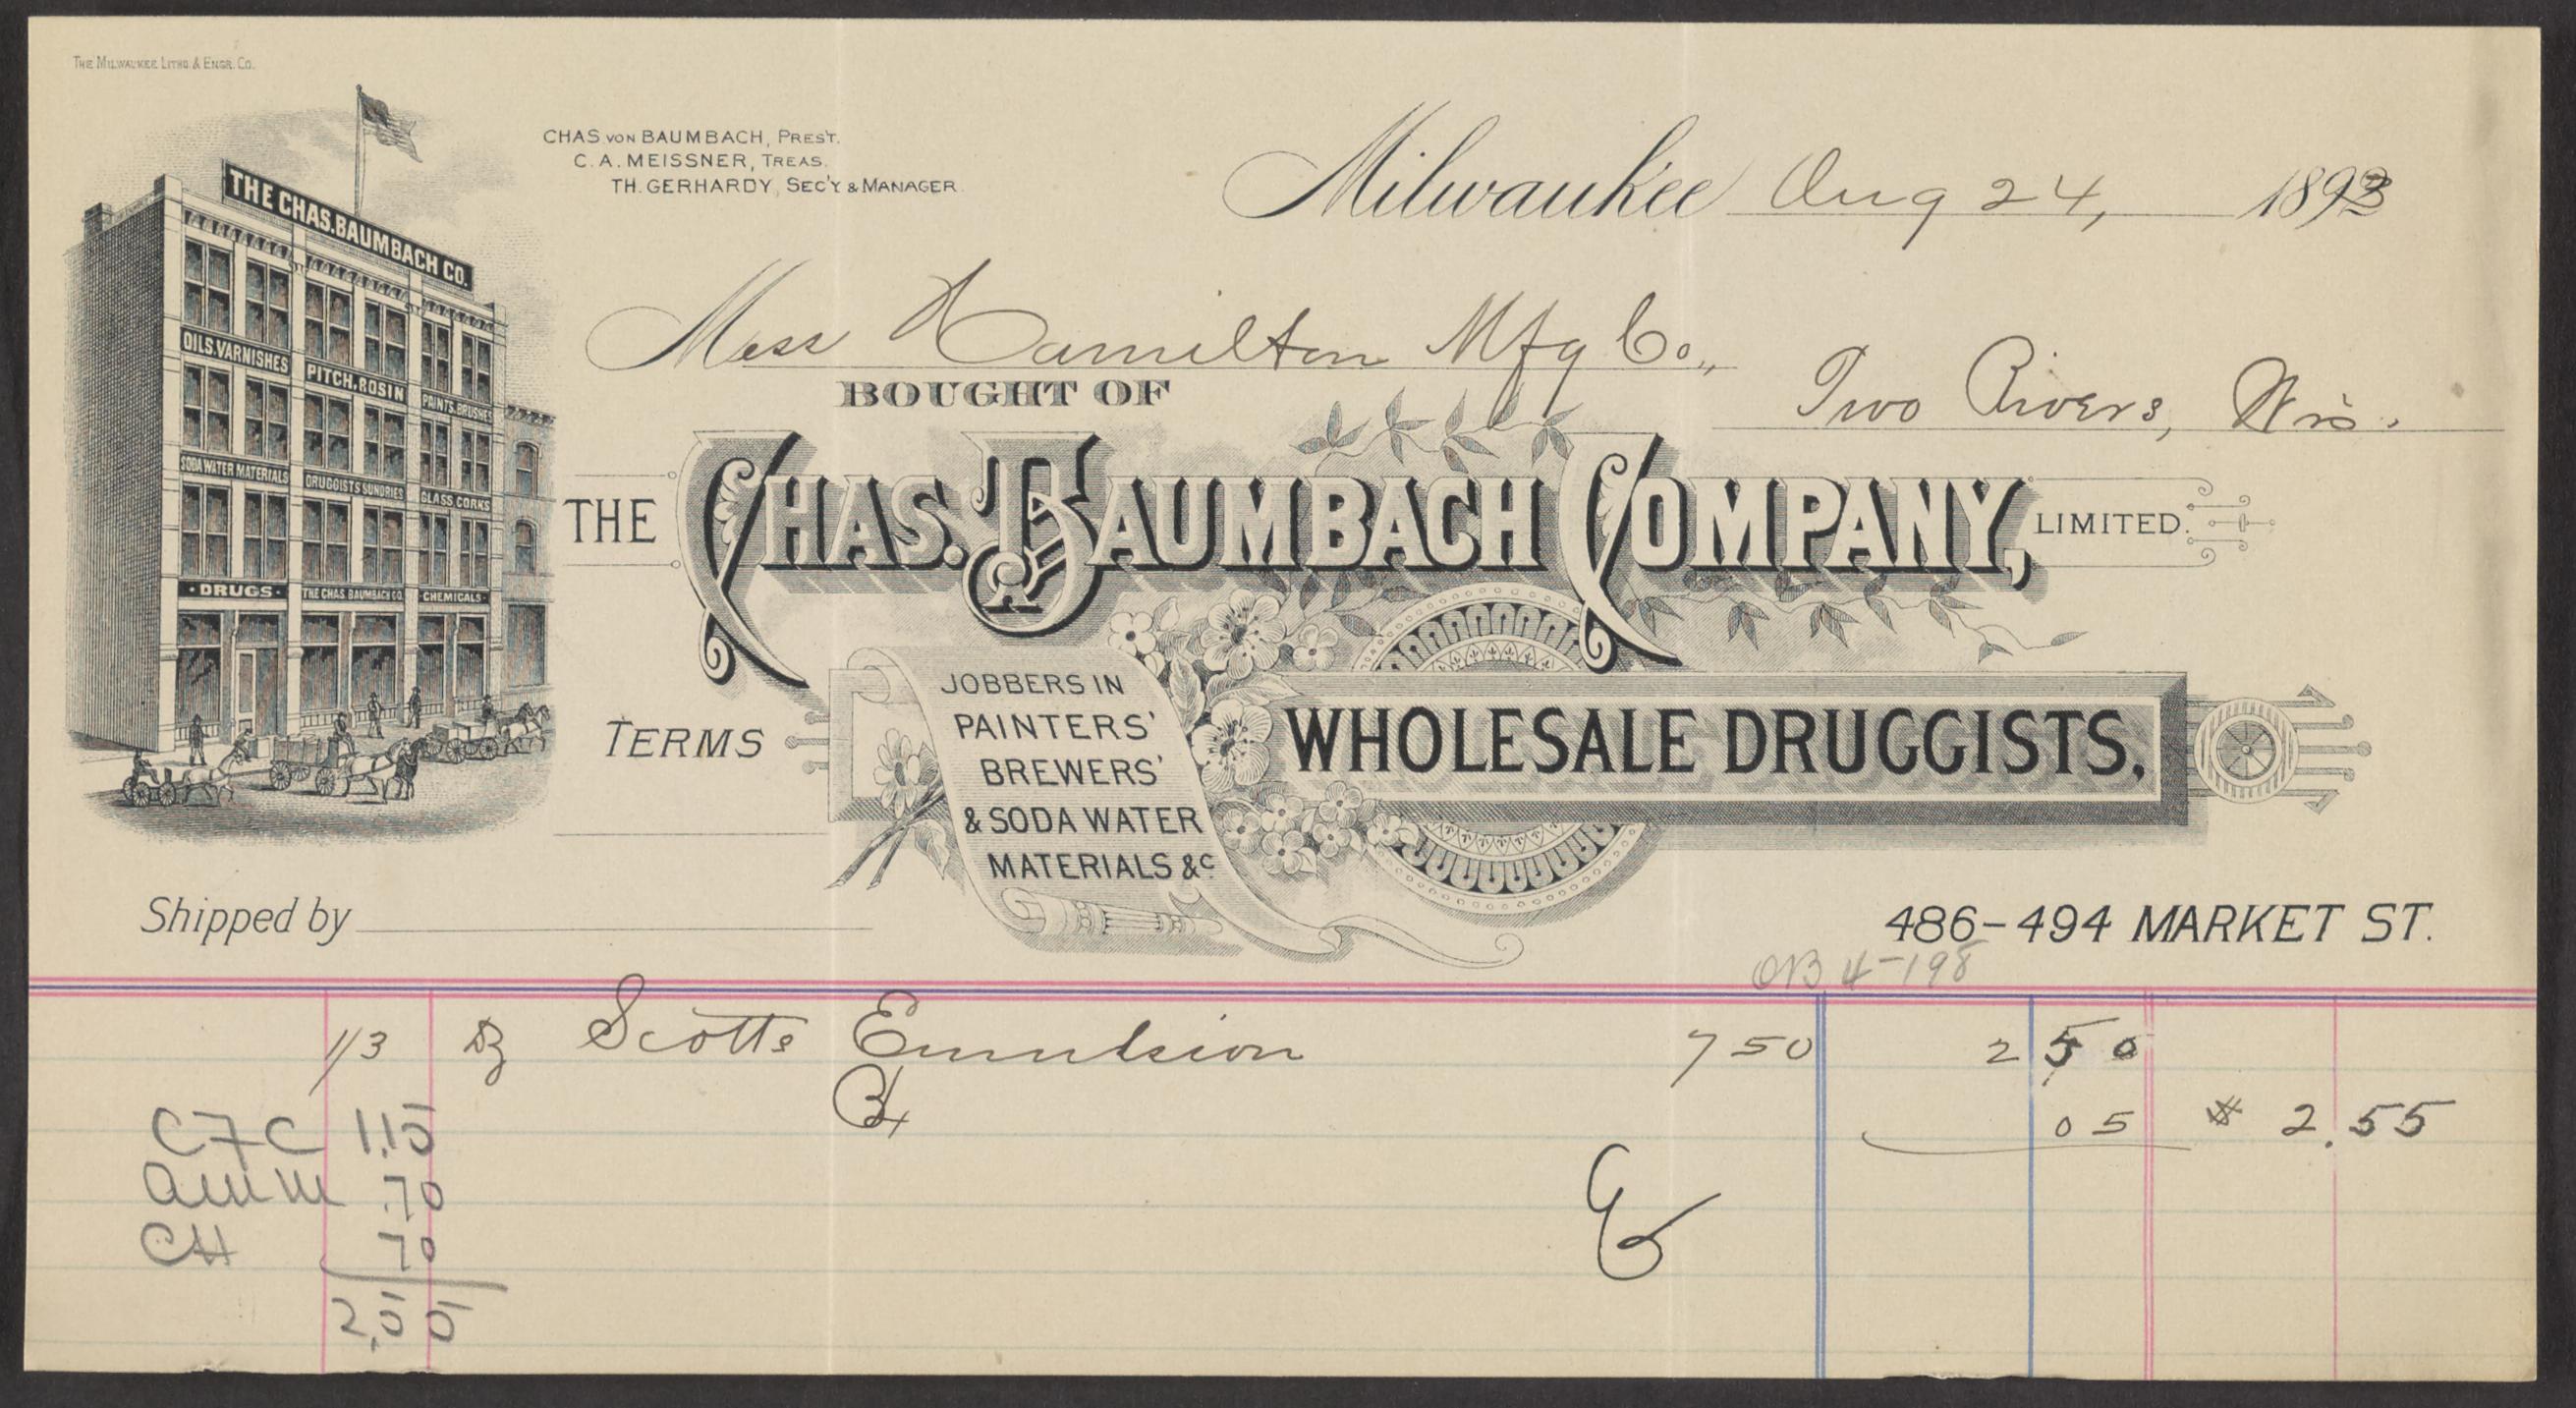 THE MILWAUKEE LITHO. & ENGR. CO.
CHAS. VON BAUMBACH, PRES'T.
C. A. MEISSNER, TREAS.
TH. GERHARDY, SEC'Y & MANAGER.
Milwaukee Aug 24, 1893
THE CHAS. BAUMBACH CO.
OILS. VARNISHES
PITCH, ROSIN
PAINTS. BRUSHES
SODA WATER MATERIALS
DRUGGISTS SUNDRIES
GLASS CORKS
· DRUGS ·
THE CHAS. BAUMBACH CO.
· CHEMICALS ·
Mess Hamilton Mfg Co.,
Two Rivers, Wis.
BOUGHT OF
THE CHAS. BAUMBACH COMPANY, LIMITED.
JOBBERS IN
PAINTERS'
BREWERS'
& SODA WATER
MATERIALS &C.
WHOLESALE DRUGGISTS,
TERMS
Shipped by
486-494 MARKET ST.
OB 4-198
1/3 Dz Scotts Emulsion 750 2 50
Bx 05 $ 2.55
C7C 1.15
.70
CH 70